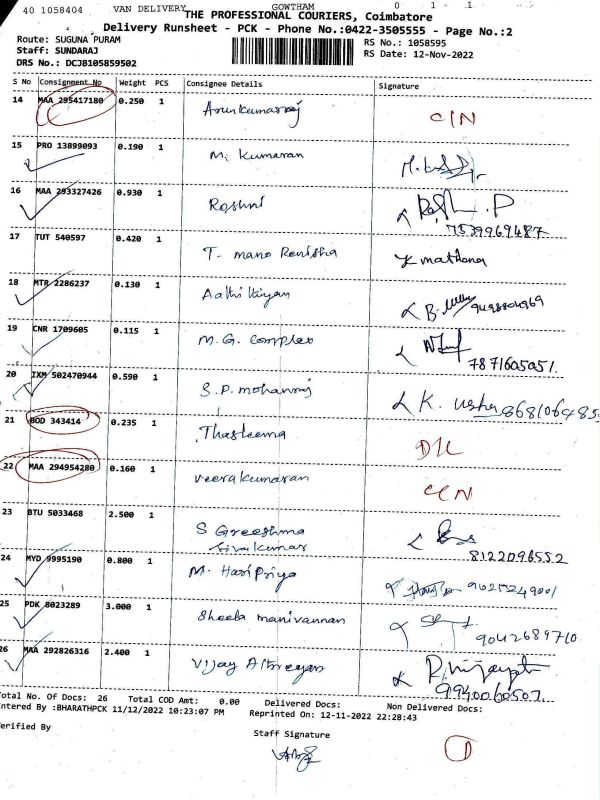 40 1058404 VAN DELIVERY GOWTHAM 0 1 1
THE PROFESSIONAL COURIERS, Coimbatore
Delivery Runsheet - PCK - Phone No.:0422-3505555 - Page No.:2
Route: SUGUNA PURAM RS No.: 1058595
Staff: SUNDARAJ RS Date: 12-Nov-2022
DRS No.: DCJB105859502
S No Consignment No Weight PCS Consignee Details Signature
14 MAA 295417180 0.250 1 Arunkumarraj C/N
15 PRO 13899093 0.190 1 M. Kumaran
16 MAA 293327426 0.930 1 Roshni
7539969487
17 TUT 540597 0.420 1 T. mano Renisha mathana
18 MTR 2286237 0.130 1 Aathithiyan
19 CNR 1709605 0.115 1 M.G. Complex
7871605051.
20 IXM 502470944 0.590 1 S.P. mohanraj K. usha 868106485
21 BOD 343414 0.235 1 Thasleema D/L
22 MAA 294954280 0.160 1 veerakumaran C/N
23 BTU 5033468 2.500 1 S Greeshma
Sivakumar
8122096552
24 MYD 9995190 0.800 1 M. Haripriya 9025249001
25 PDK 8023289 3.000 1 Sheela manivannan
9042689710
26 MAA 292826316 2.400 1 Vijay Athreyan
9940060507.
Total No. Of Docs: 26 Total COD Amt: 0.00 Delivered Docs: Non Delivered Docs:
Entered By :BHARATHPCK 11/12/2022 10:23:07 PM Reprinted On: 12-11-2022 22:28:43
Verified By Staff Signature